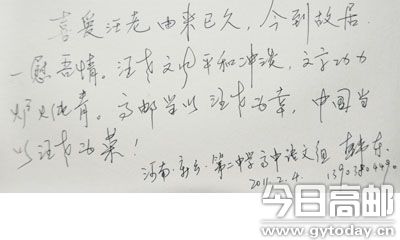 喜爱汪老由来已久，今到故居
一慰吾情。汪老文风平和冲淡，文字功力
炉火纯青。高邮当以汪老为幸，中国当
以汪老为荣！
河南·新乡·第二中学高中语文组
2011.2.4.
今日高邮
www.gytoday.cn